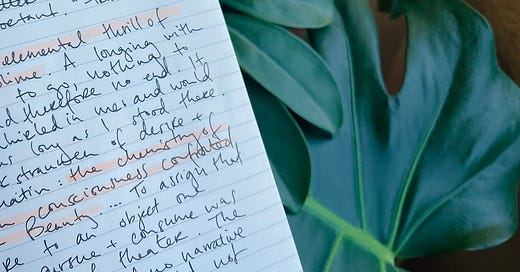 portant. "
elemental thrill of
A longing with
to go, nothing to
therefore no end. It
in was and would
as long as I stood there.
of desire +
: the chemistry of
consciousness confronted
Beauty.... To assign that
to an object one
+ consume was
theater. The
no narrative
not